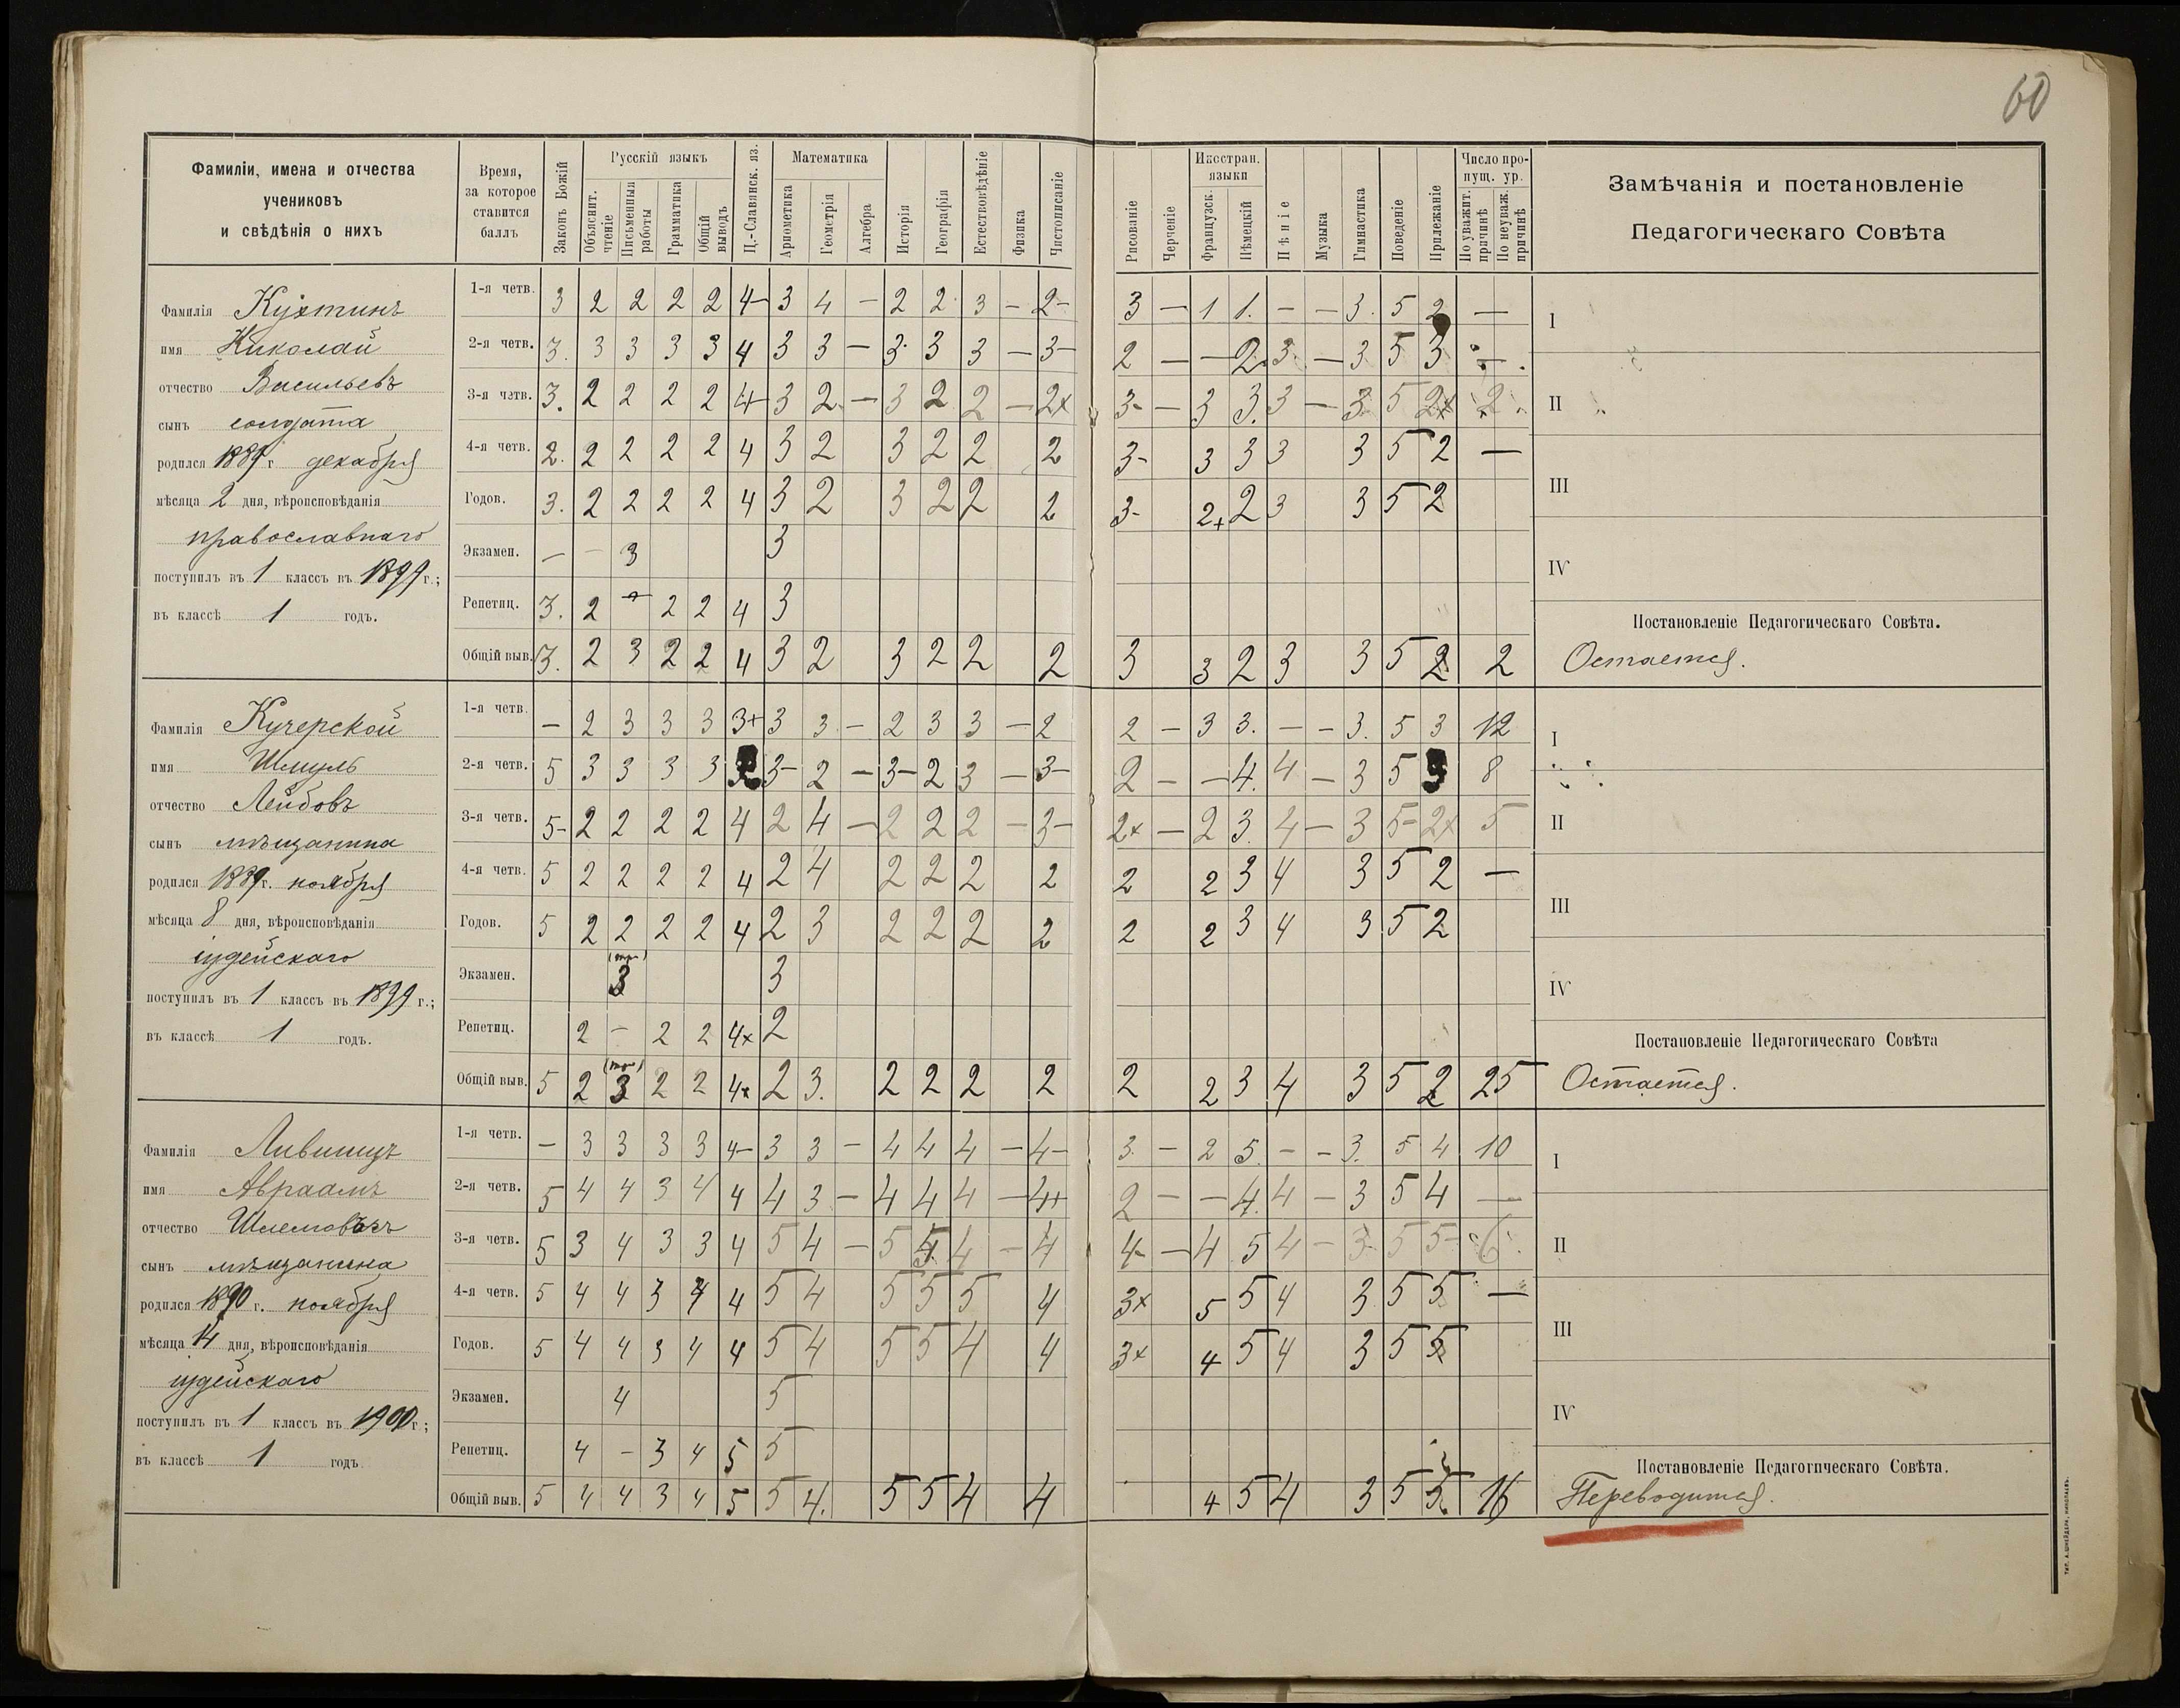 60
Фамиліи, имена и отчества учениковъ и свѣдѣнія о нихъ
Время, за которое ставится баллъ
Законъ Божій
Русскій языкъ
Объяснит. чтеніе
Письменныя работы
Грамматика
Общій выводъ
Ц.-Славянск. яз.
Математика
Ариѳметика
Геометрія
Алгебра
Исторія
Географія
Естествовѣдѣніе
Физика
Чистописаніе
Рисованіе
Черченіе
Иностран. языки
Французск.
Нѣмецкій
Пѣніе
Музыка
Гимнастика
Поведеніе
Прилежаніе
Число пропущ. ур.
По уважит. причинѣ
По неуваж. причинѣ
Замѣчанія и постановленіе
Педагогическаго Совѣта
Фамилія Кухтинъ
имя Николай
отчество Васильевъ
сынъ солдата
родился 1889 г. декабря
мѣсяца 2 дня, вѣроисповѣданія
православнаго
поступилъ въ 1 классъ въ 1899 г.;
въ классѣ 1 годъ.
1-я четв. 3 2 2 2 2 4- 3 4 — 2 2 3 — 2- 3 — 1 1. — — 3. 5 2 —
2-я четв. 3. 3 3 3 3 4 3 3 — 3 3 3 — 3- 2 — — 2. 3 — 3 5 3 —
3-я четв. 3. 2 2 2 2 4- 3 2 — 3 2 2 — 2x 3- — 3 3. 3 — 3 5 2x 2
4-я четв. 2. 2 2 2 2 4 3 2 3 2 2 2 3- 3 3 3 3 5 2 —
Годов. 3. 2 2 2 2 4 3 2 3 2 2 2 3- 2+ 2 3 3 5 2
Экзамен. — — 3 3
Репетиц. 3. 2 — 2 2 4 3
Общій выв. 3. 2 3 2 2 4 3 2 3 2 2 2 3 3 2 3 3 5 2 2
I
II
III
IV
Постановленіе Педагогическаго Совѣта.
Остается.
Фамилія Кучерской
имя Шмуль
отчество Лейбовъ
сынъ мѣщанина
родился 1889 г. ноября
мѣсяца 8 дня, вѣроисповѣданія
іудейскаго
поступилъ въ 1 классъ въ 1899 г.;
въ классѣ 1 годъ.
1-я четв. — 2 3 3 3 3+ 3 3 — 2 3 3 — 2 2 — 3 3. — — 3. 5 3 12
2-я четв. 5 3 3 3 3 3- 2 — 3- 2 3 — 3- 2 — — 4. 4 — 3 5 3 8
3-я четв. 5- 2 2 2 2 4 2 4 — 2 2 2 — 3- 2x — 2 3. 4 — 3 5 2x 5
4-я четв. 5 2 2 2 2 4 2 4 2 2 2 2 2 2 3 4 3 5 2 —
Годов. 5 2 2 2 2 4 2 3 2 2 2 2 2 2 3 4 3 5 2
Экзамен. 3 3
Репетиц. 2 — 2 2 4x 2
Общій выв. 5 2 3 2 2 4x 2 3. 2 2 2 2 2 2 3 4 3 5 2 25
I
II
III
IV
Постановленіе Педагогическаго Совѣта
Остается.
Фамилія Лившицъ
имя Авраамъ
отчество
сынъ мѣщанина
родился 1890 г. ноября
мѣсяца 14 дня, вѣроисповѣданія
іудейскаго
поступилъ въ 1 классъ въ 1900 г.;
въ классѣ 1 годъ
1-я четв. — 3 3 3 3 4- 3 3 — 4 4 4 — 4- 3. — 2 5. — — 3. 5 4 10
2-я четв. 5 4 4 3 4 4 4 3 — 4 4 4 — 4+ 2 — — 4. 4 — 3 5 4 —
3-я четв. 5 3 4 3 3 4 5 4 — 5 4 — 4 4- — 4 5 4 — 3 5 5- 6
4-я четв. 5 4 4 3 4 4 5 4 5 5 5 4 3x 5 5 4 3 5 5 —
Годов. 5 4 4 3 4 4 5 4 5 5 4 4 3x 4 5 4 3 5 5
Экзамен. 4 5
Репетиц. 4 — 3 4 5 5
Общій выв. 5 4 4 3 4 5 5 4. 5 5 4 4 4 5 4 3 5 5 16
I
II
III
IV
Постановленіе Педагогическаго Совѣта.
Переводится.